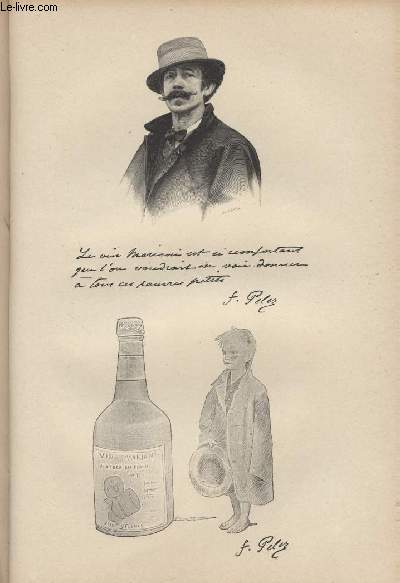 Le-livre.com
Le vin Mariani est si comfortant
que l'on voudrait en voir donner
à tous ces pauvres petits
F. Pelez
VIN MARIANI
F. Pelez